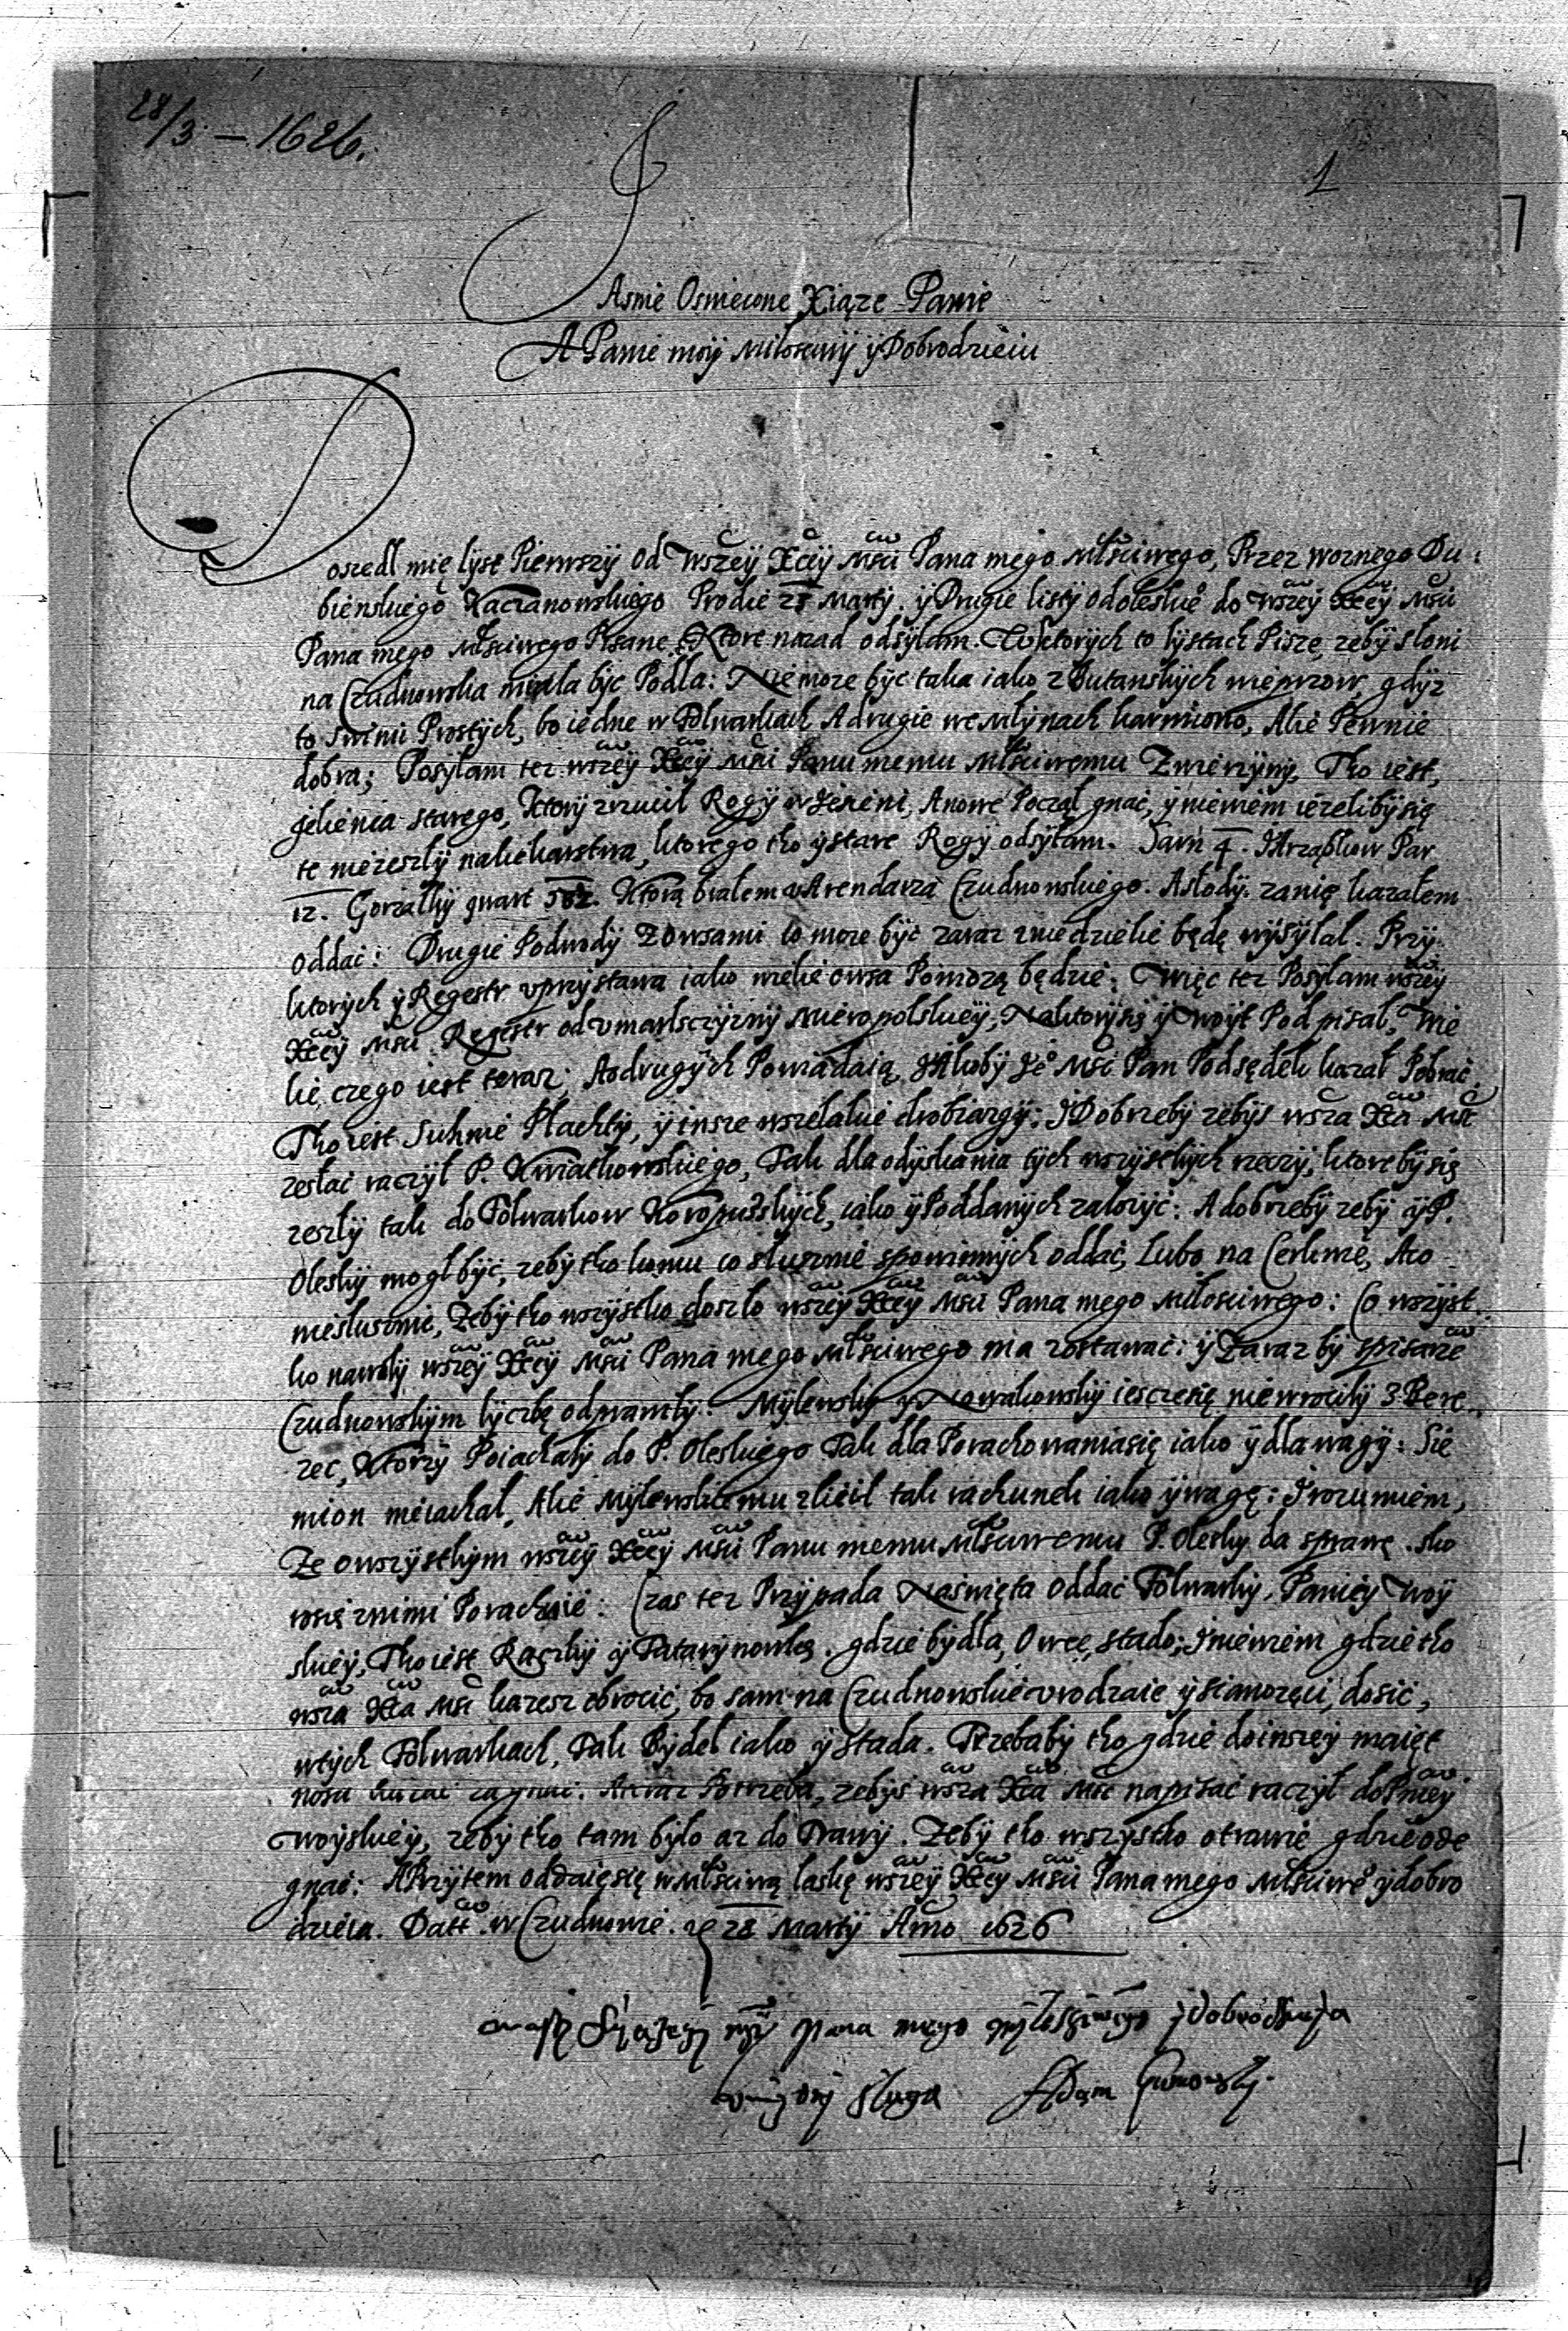 28/3 – 1626.
1
JAsnie Oswiecone Xiąze Panie
A Panie moÿ Miłosciwÿ ÿ Dobrodzieiu
Doszedl mię lÿst Pierwszÿ od Wszeÿ Xceÿ Msci Pana mego Młsciwego, Przez woznego Du:
bienskiego Kaczanowskiego Prodie 28 Marty. ÿ Drugie listÿ od oleskie° do wszeÿ Xceÿ Msci
Pana mego Młsciwego Pisane, Ktore nazad odsÿłam. W ktorÿch to lÿstach Pisze, zebÿ słoni
na Czudnowska miała bÿc Podla: Nie moze bÿc taka iako z Hutanskÿch wieprzow, gdÿz
to swini Prostÿch, bo iedne w Folwarkach A drugie we Młÿnach karmiono, Alie Pewnie
dobra; Posÿłam tez wszeÿ Xceÿ Msci Panu memu Młsciwemu Zwierzÿnÿ, Tho iest,
jelienia starego, Ktorÿ zrzucił Rogÿ w jesieni, A nowe Począł gnać, ÿ niewiem iezelibÿ się
te niezeszłÿ na liekarstwa, ktorego tho ÿ stare Rogÿ odsÿłam. Sarn 4. JArząbkow Par
12. Gorzałkÿ quart Ktorą brałem u Arendarza Czudnowskiego. A słodÿ zanię kazałem
oddać: Drugie Podwodÿ z owsami co moze bÿc zaraz z niedzielie będę wÿsÿłał. Przÿ
ktorÿch ÿ Regestr uprzÿstawa iako wielie owsa Powiozą będzie: Więc tez Posÿłam wszeÿ
Xceÿ Msci Regestr od umarlsczÿznÿ Mieropolskieÿ, Na ktorÿ się ÿ Woÿt Podpisał, Wie
lie czego iest teraz; A o drugÿch Powiadaią, JAkobÿ Je° Msc Pan Podsędek kazał Pobrać.
Tho iest Suknie Płachtÿ, ÿ insze wszelakie drobiazgÿ: J Dobrzebÿ zebÿs wsza Xca Msc
zesłać raczÿł P. Kwiatkowskiego, Tak dla odÿskania tÿch wszÿstkÿch rzeczÿ, ktorebÿ się
zeszłÿ tak do Folwarkow iako ÿ Poddanÿch załozÿć: A dobrzebÿ zebÿ ÿ P.
Oleskÿ mogł bÿć, zebÿ tho komu co słusznie spowinnÿch oddać, Lubo na Cerkwie, Aco
niesłusznie, Zebÿ tho wszÿstko doszło wszeÿ Xceÿ Msci Pana mego Miłosciwego: Co wszÿst
ko nawolÿ wszeÿ Xceÿ Msci Pana mego Młsciwego ma zostawać: ÿ Zaraz bÿ spisarze
Czudnowskÿm lÿczbę Mÿlewskÿ ÿ Nowakowskÿ iescze się niewrocilÿ z Bere
zec, Ktorzÿ Poiachalÿ do P. Oleskiego Tak dla Porachowania się iako ÿ dla wagÿ: Sie
mion nieiachał, Alie Mÿlewskiemu zliecił tak rachunek iako ÿ wagę: J rozumiem,
Ze owszÿstkÿm wszeÿ Xceÿ Msci Panu memu Młsciwemu P. Oleskÿ da sprawę. sko
ro się z nimi Porachuie: Czas tez Przÿpada Naswięta oddać Folwarkÿ, Panieÿ Woÿ
skieÿ, Tho iest Raczkÿ ÿ Tatarÿnowkę. gdzie bÿdła, Owce, stado; J niewiem gdzie tho
wsza Xca Msc kazesz obrocić, bo sam na Czudnowskie urodzaie ÿ sianozęci, dosić,
wtÿch Folwarkach, Tak Bÿdeł iako ÿ Stada. Trzebabÿ tho gdzie do inszeÿ maięt
nosci kazać zagnać. A teraz Potrzeba, zebÿs wsza Xca Msc napisać raczÿł do Pnieÿ
Woÿskieÿ, zebÿ tho tam bÿło az do Trawÿ. Zebÿ tho wszÿstko otrawie gdzie ode
gnać: A Przÿtem oddaię się w Młsciwą łaskę wszeÿ Xceÿ Msci Pana mego Młsciwe° ÿ dobro
dzieia. Datt. w Czudnowie. 28 Martÿ Anno 1626
Pana mego ÿ Dobrodzieia
sługa Adam